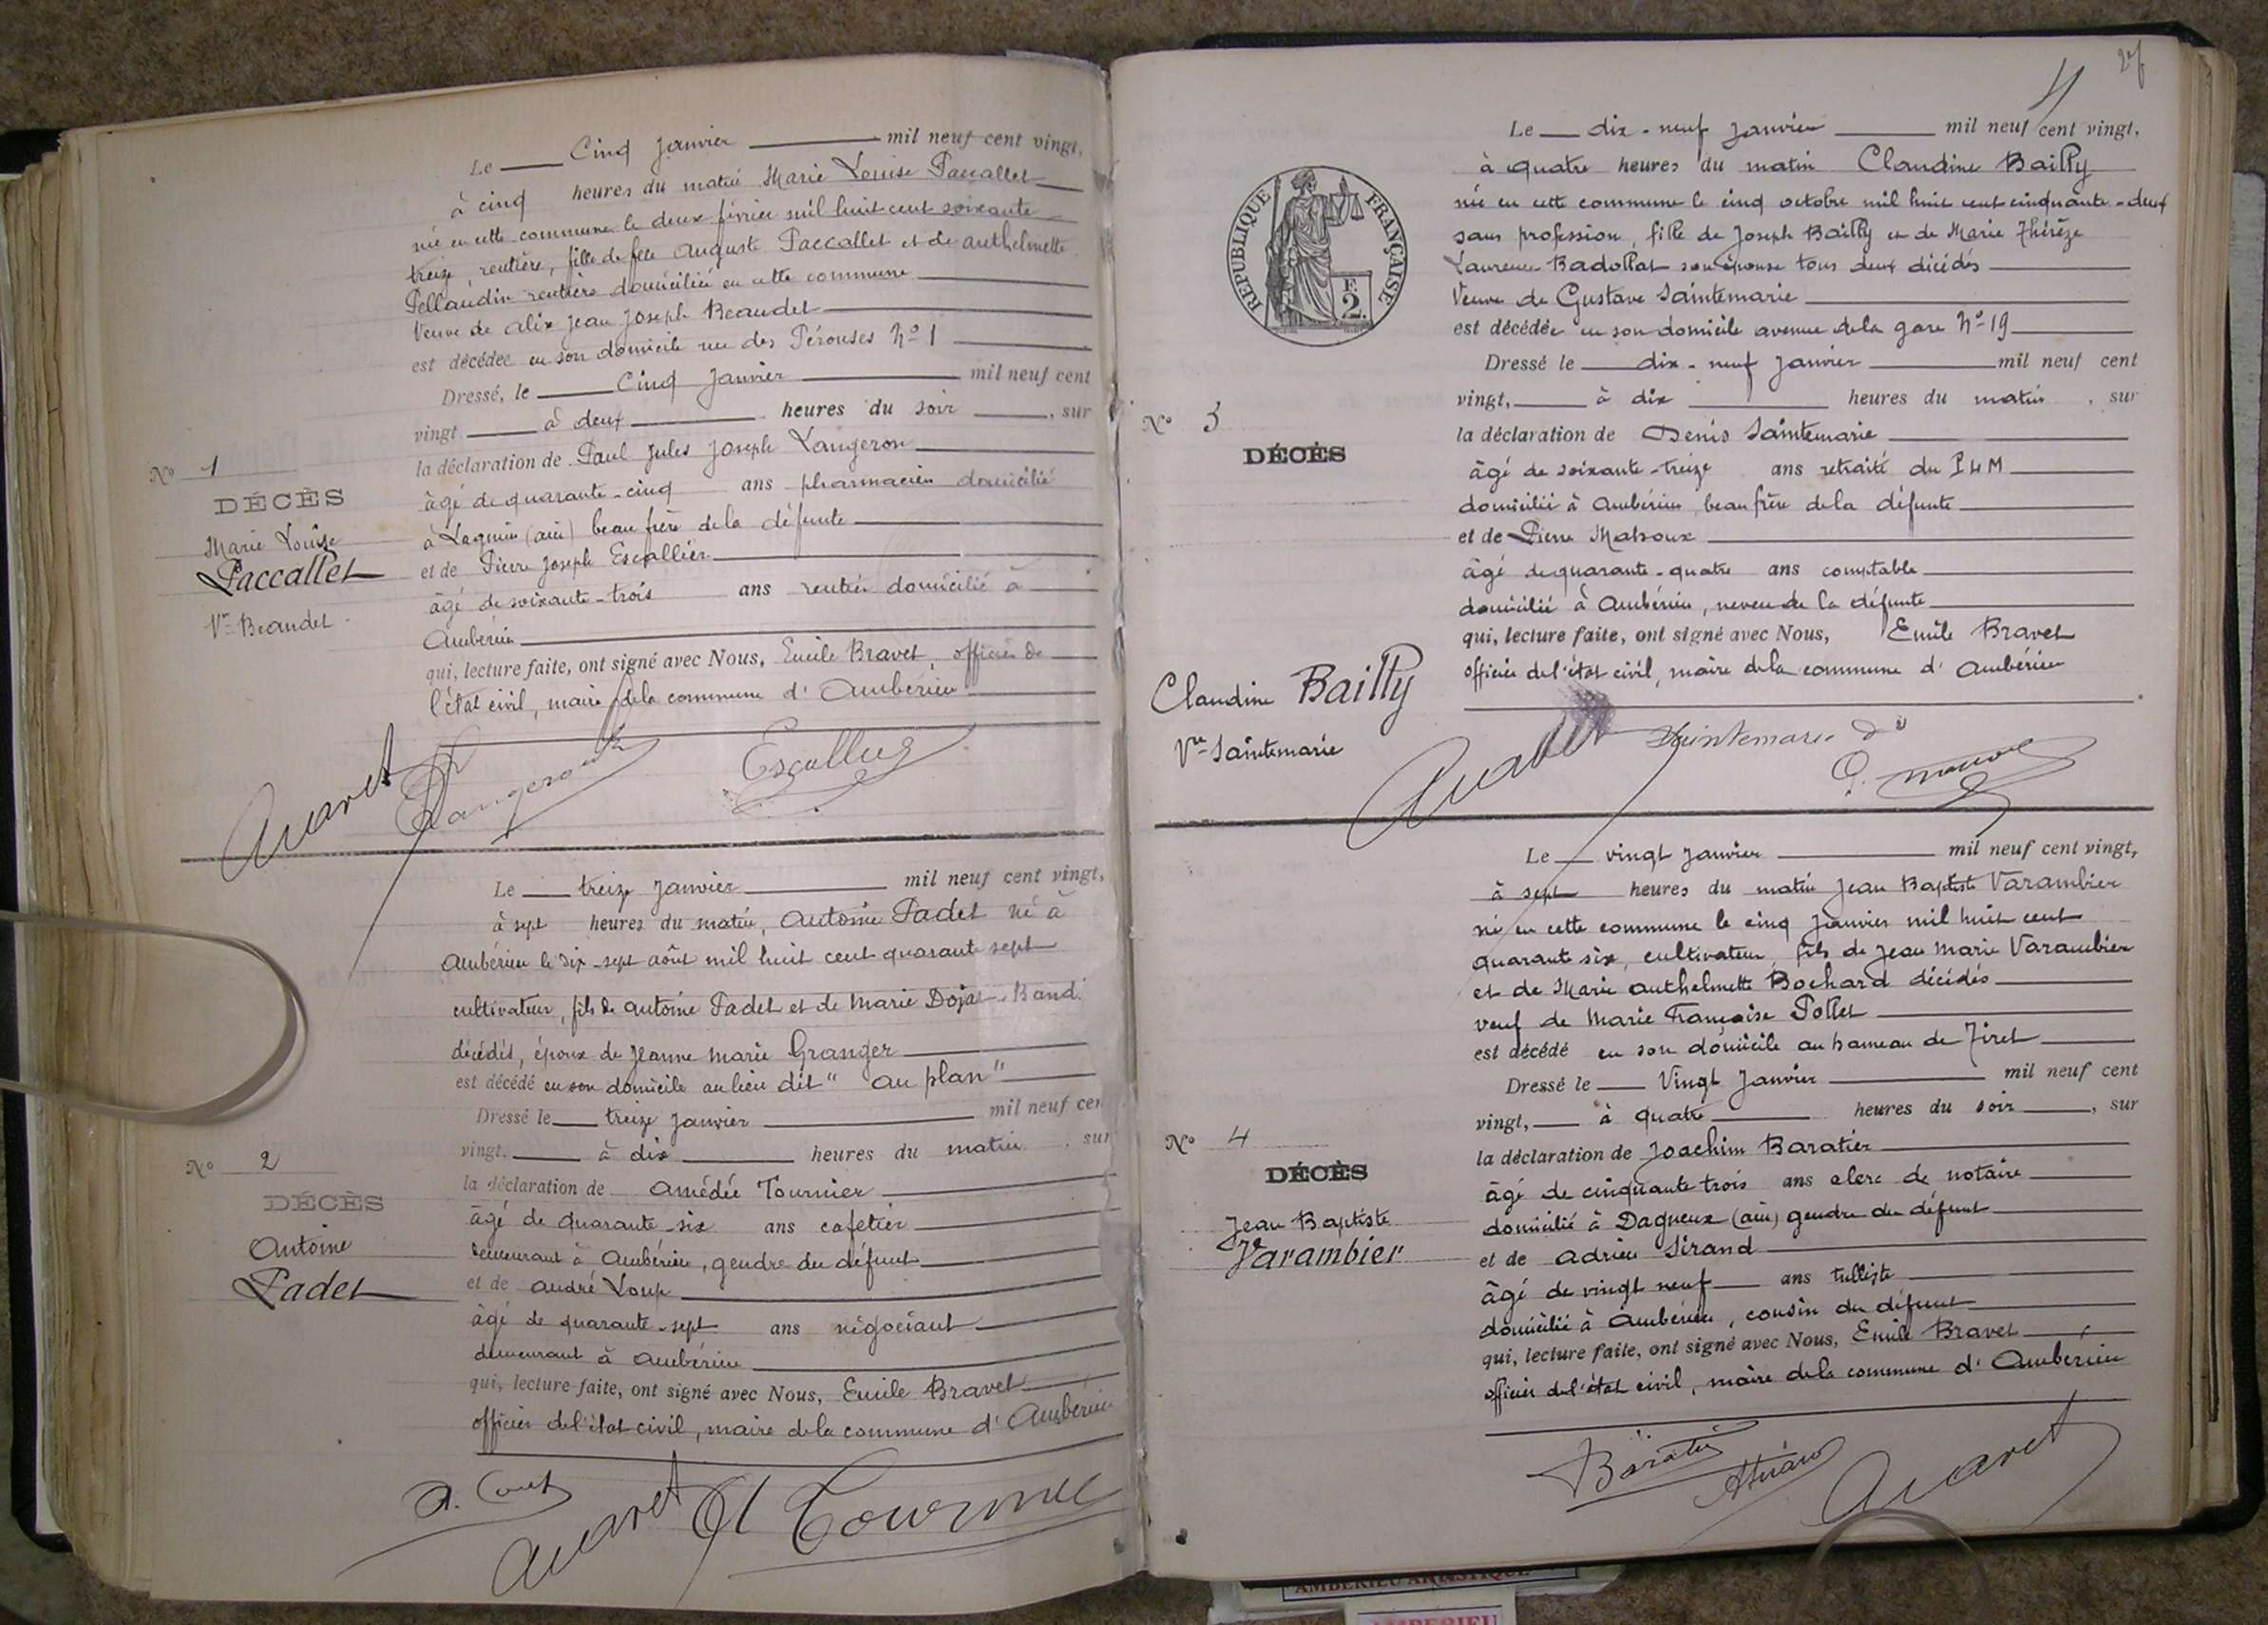 Le Cinq Janvier mil neuf cent vingt,
à cinq heures du matin Marie Louise Paccallet
née en cette commune le deux février mil huit cent soixante
treize, rentière, fille de feu Auguste Paccallet et de Anthelmette
Pellaudin rentière domiciliée en cette commune
Veuve de Alix Jean Joseph Beaudet
est décédée en son domicile rue des Pérouses No 1
Dressé, le Cinq Janvier mil neuf cent
vingt à deux heures du soir, sur
la déclaration de Paul Jules Joseph Langeron
âgé de quarante-cinq ans pharmacien domicilié
à Lagnieu (ain) beau frère de la défunte
et de Pierre Joseph Escallier
âgé de soixante-trois ans rentier domicilié à
Ambérieu
qui, lecture faite, ont signé avec Nous, Emile Bravet, officier de
l'état civil, maire de la commune d'Ambérieu
No 1
DÉCÈS
Marie Louise
Paccallet
Ve Beaudet
Langeron
Le treize Janvier mil neuf cent vingt,
à sept heures du matin, Antoine Padet né à
Ambérieu le dix-sept août mil huit cent quarante sept
cultivateur, fils de Antoine Padet et de Marie Dojat-Band
décédés, époux de Jeanne Marie Granger
est décédé en son domicile au lieu dit "au plan"
Dressé le treize Janvier mil neuf cen
vingt, à dix heures du matin, sur
la déclaration de Amédée Tournier
âgé de quarante-six ans cafetier
demeurant à Ambérieu, gendre du défunt
et de André Loup
âgé de quarante-sept ans négociant
demeurant à Ambérieu
qui, lecture faite, ont signé avec Nous, Emile Bravet
officier de l'état civil, maire de la commune d'Ambérieu
No 2
DÉCÈS
Antoine
Padet
4
Le dix-neuf Janvier mil neuf cent vingt,
à quatre heures du matin Claudine Bailly
née en cette commune le cinq octobre mil huit cent cinquante-deux
sans profession, fille de Joseph Bailly et de Marie Thérèze
Laurence Badollat son épouse tous deux décédés
Veuve de Gustave Saintemarie
est décédée en son domicile avenue de la gare No 19
Dressé le dix-neuf Janvier mil neuf cent
vingt, à dix heures du matin, sur
la déclaration de Denis Saintemarie
âgé de soixante-treize ans retraité du PLM
domicilié à Ambérieu, beau frère de la défunte
et de Pierre
âgé de quarante-quatre ans comptable
domicilié à Ambérieu, neveu de la défunte
qui, lecture faite, ont signé avec Nous, Emile Bravet
officier de l'état civil, maire de la commune d'Ambérieu
RÉPUBLIQUE FRANÇAISE
F.
2.
No 3
DÉCÈS
Claudine Bailly
Ve Saintemarie
Saintemarie
Le vingt Janvier mil neuf cent vingt,
à sept heures du matin Jean Baptiste Varambier
né en cette commune le cinq Janvier mil huit cent
quarante six, cultivateur, fils de Jean Marie Varambier
et de Marie Anthelmette Bochard décédés
veuf de Marie Françoise Pollet
est décédé en son domicile au hameau de Tiret
Dressé le Vingt Janvier mil neuf cent
vingt, à quatre heures du soir, sur
la déclaration de Joachim Baratier
âgé de cinquante trois ans clerc de notaire
domicilié à Dagneux (ain) gendre du défunt
et de Adrien Sirand
âgé de vingt neuf ans tulliste
domicilié à Ambérieu, cousin du défunt
qui, lecture faite, ont signé avec Nous, Emile Bravet
officier de l'état civil, maire de la commune d'Ambérieu
No 4
DÉCÈS
Jean Baptiste
Varambier
AMBERIEU ARTISTIQUE
AMBERIEU